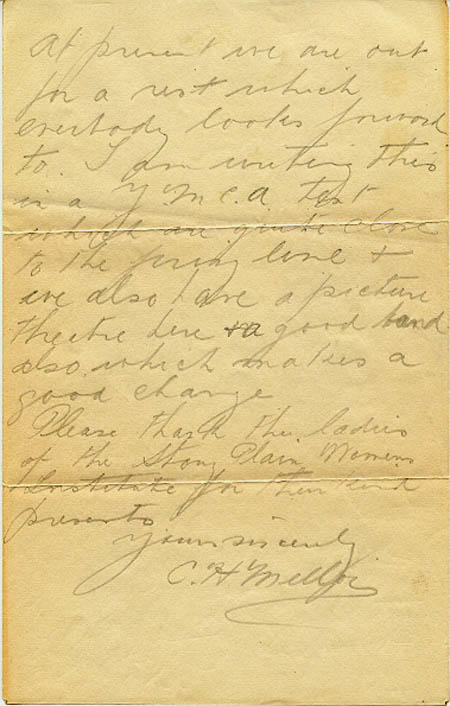 At present we are out
for a rest which
everbody looks forward
to. I am writing this
in a Y.M.C.A tent
which are quite close
to the firing line +
we also have a picture
theatre here + a good band
also which makes a
good change
Please thank the ladies
of the Stony Plain Womens
Institute for their kind
presents
Yours sincerely
C. H